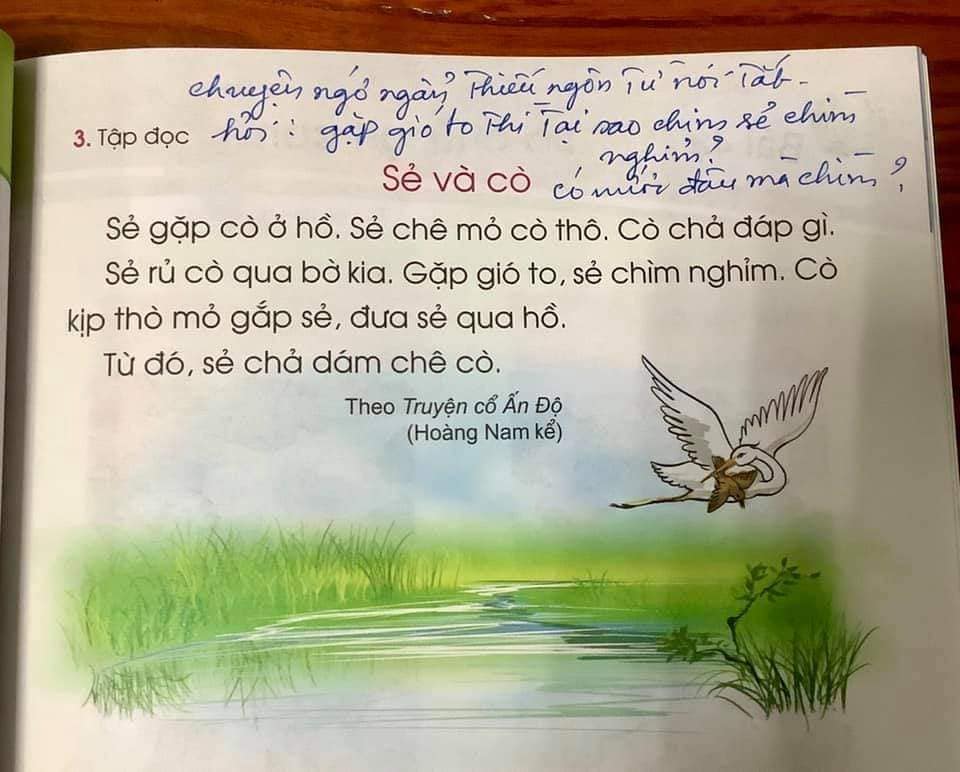 chuyện ngớ ngẩn, Thiếu ngôn Từ nói Tắt-
3. Tập đọc
hỏi: gặp gió to Thì Tại sao chim sẻ chìm
nghỉm?
Sẻ và cò
có nước đâu mà chìm?
Sẻ gặp cò ở hồ. Sẻ chê mỏ cò thô. Cò chả đáp gì.
Sẻ rủ cò qua bờ kia. Gặp gió to, sẻ chìm nghỉm. Cò
kịp thò mỏ gắp sẻ, đưa sẻ qua hồ.
Từ đó, sẻ chả dám chê cò.
Theo Truyện cổ Ấn Độ
(Hoàng Nam kể)